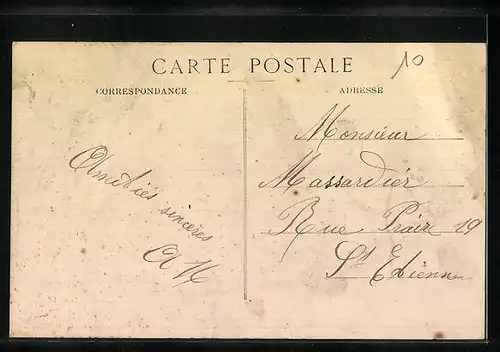 CARTE POSTALE
10
CORRESPONDANCE
ADRESSE
Amitiés sincères
A H
Monsieur
Massardier
Rue Praire 19
St Etienne